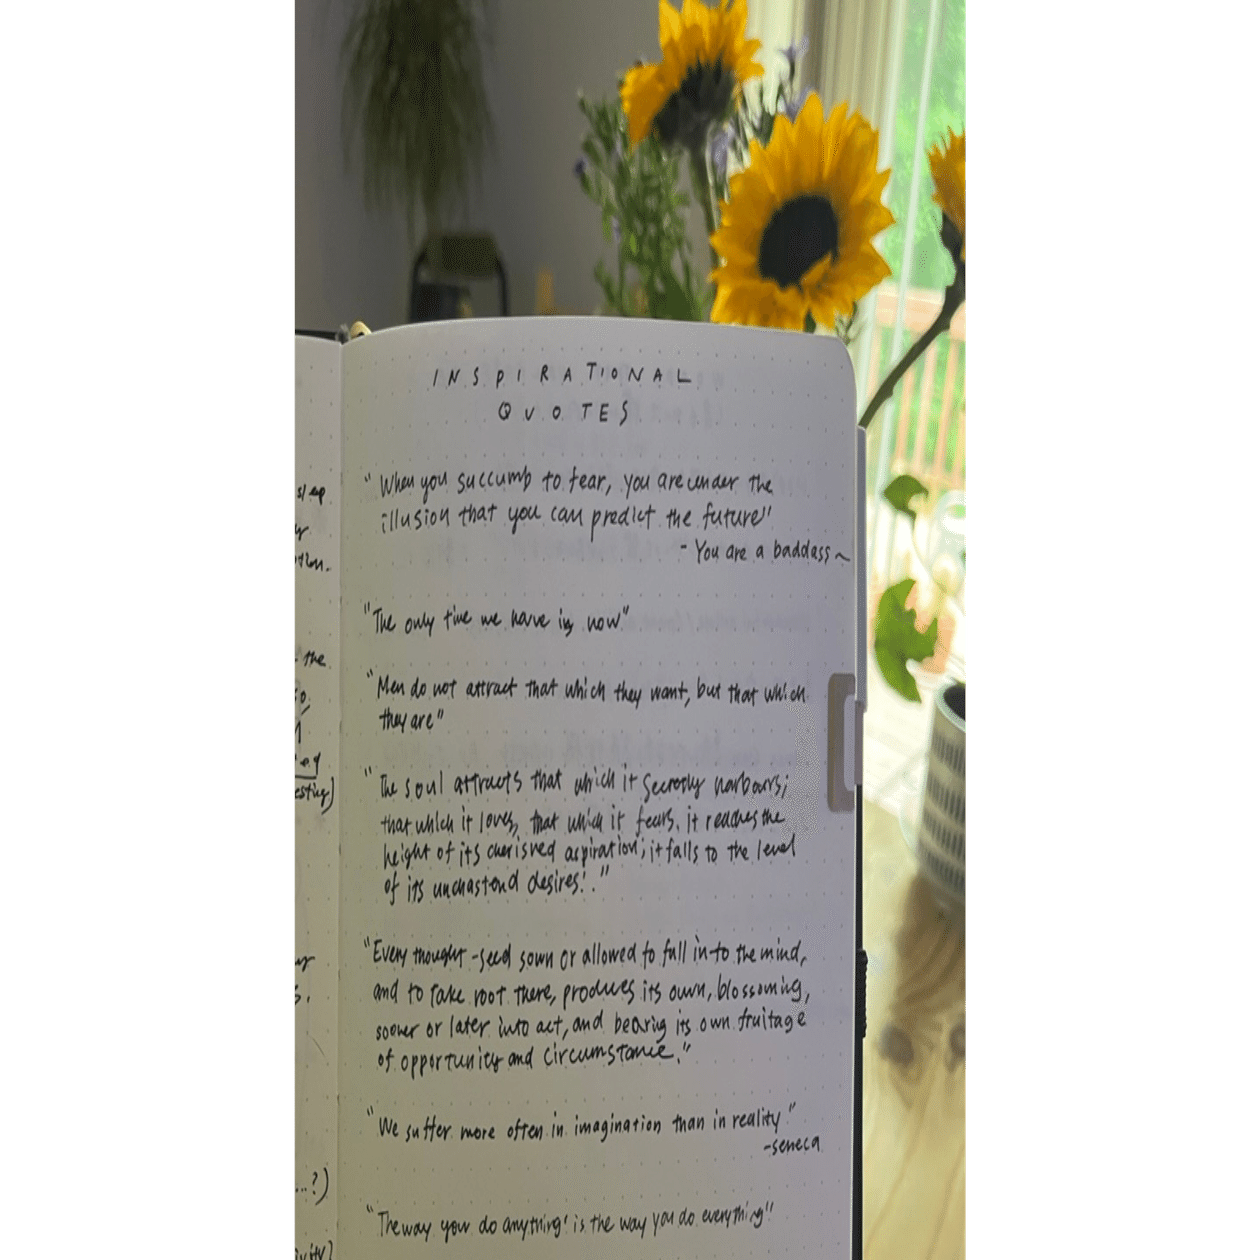 INSPIRATIONAL
QUOTES
"When you succumb to fear, you are under the
illusion that you can predict the future"
- You are a baddass ~
"The only time we have is now"
"Men do not attract that which they want, but that which
they are"
"The soul attracts that which it secretly harbours;
that which it loves, that which it fears. it reaches the
height of its cherished aspiration; it falls to the level
of its unchastend desires!."
"Every thought-seed sown or allowed to fall in to the mind,
and to take root there, produces its own, blossoming,
sooner or later into act, and bearing its own fruitage
of opportunity and circumstance."
"We suffer more often in imagination than in reality"
-seneca
"The way your do anything' is the way you do everything"
slap
the
...?)